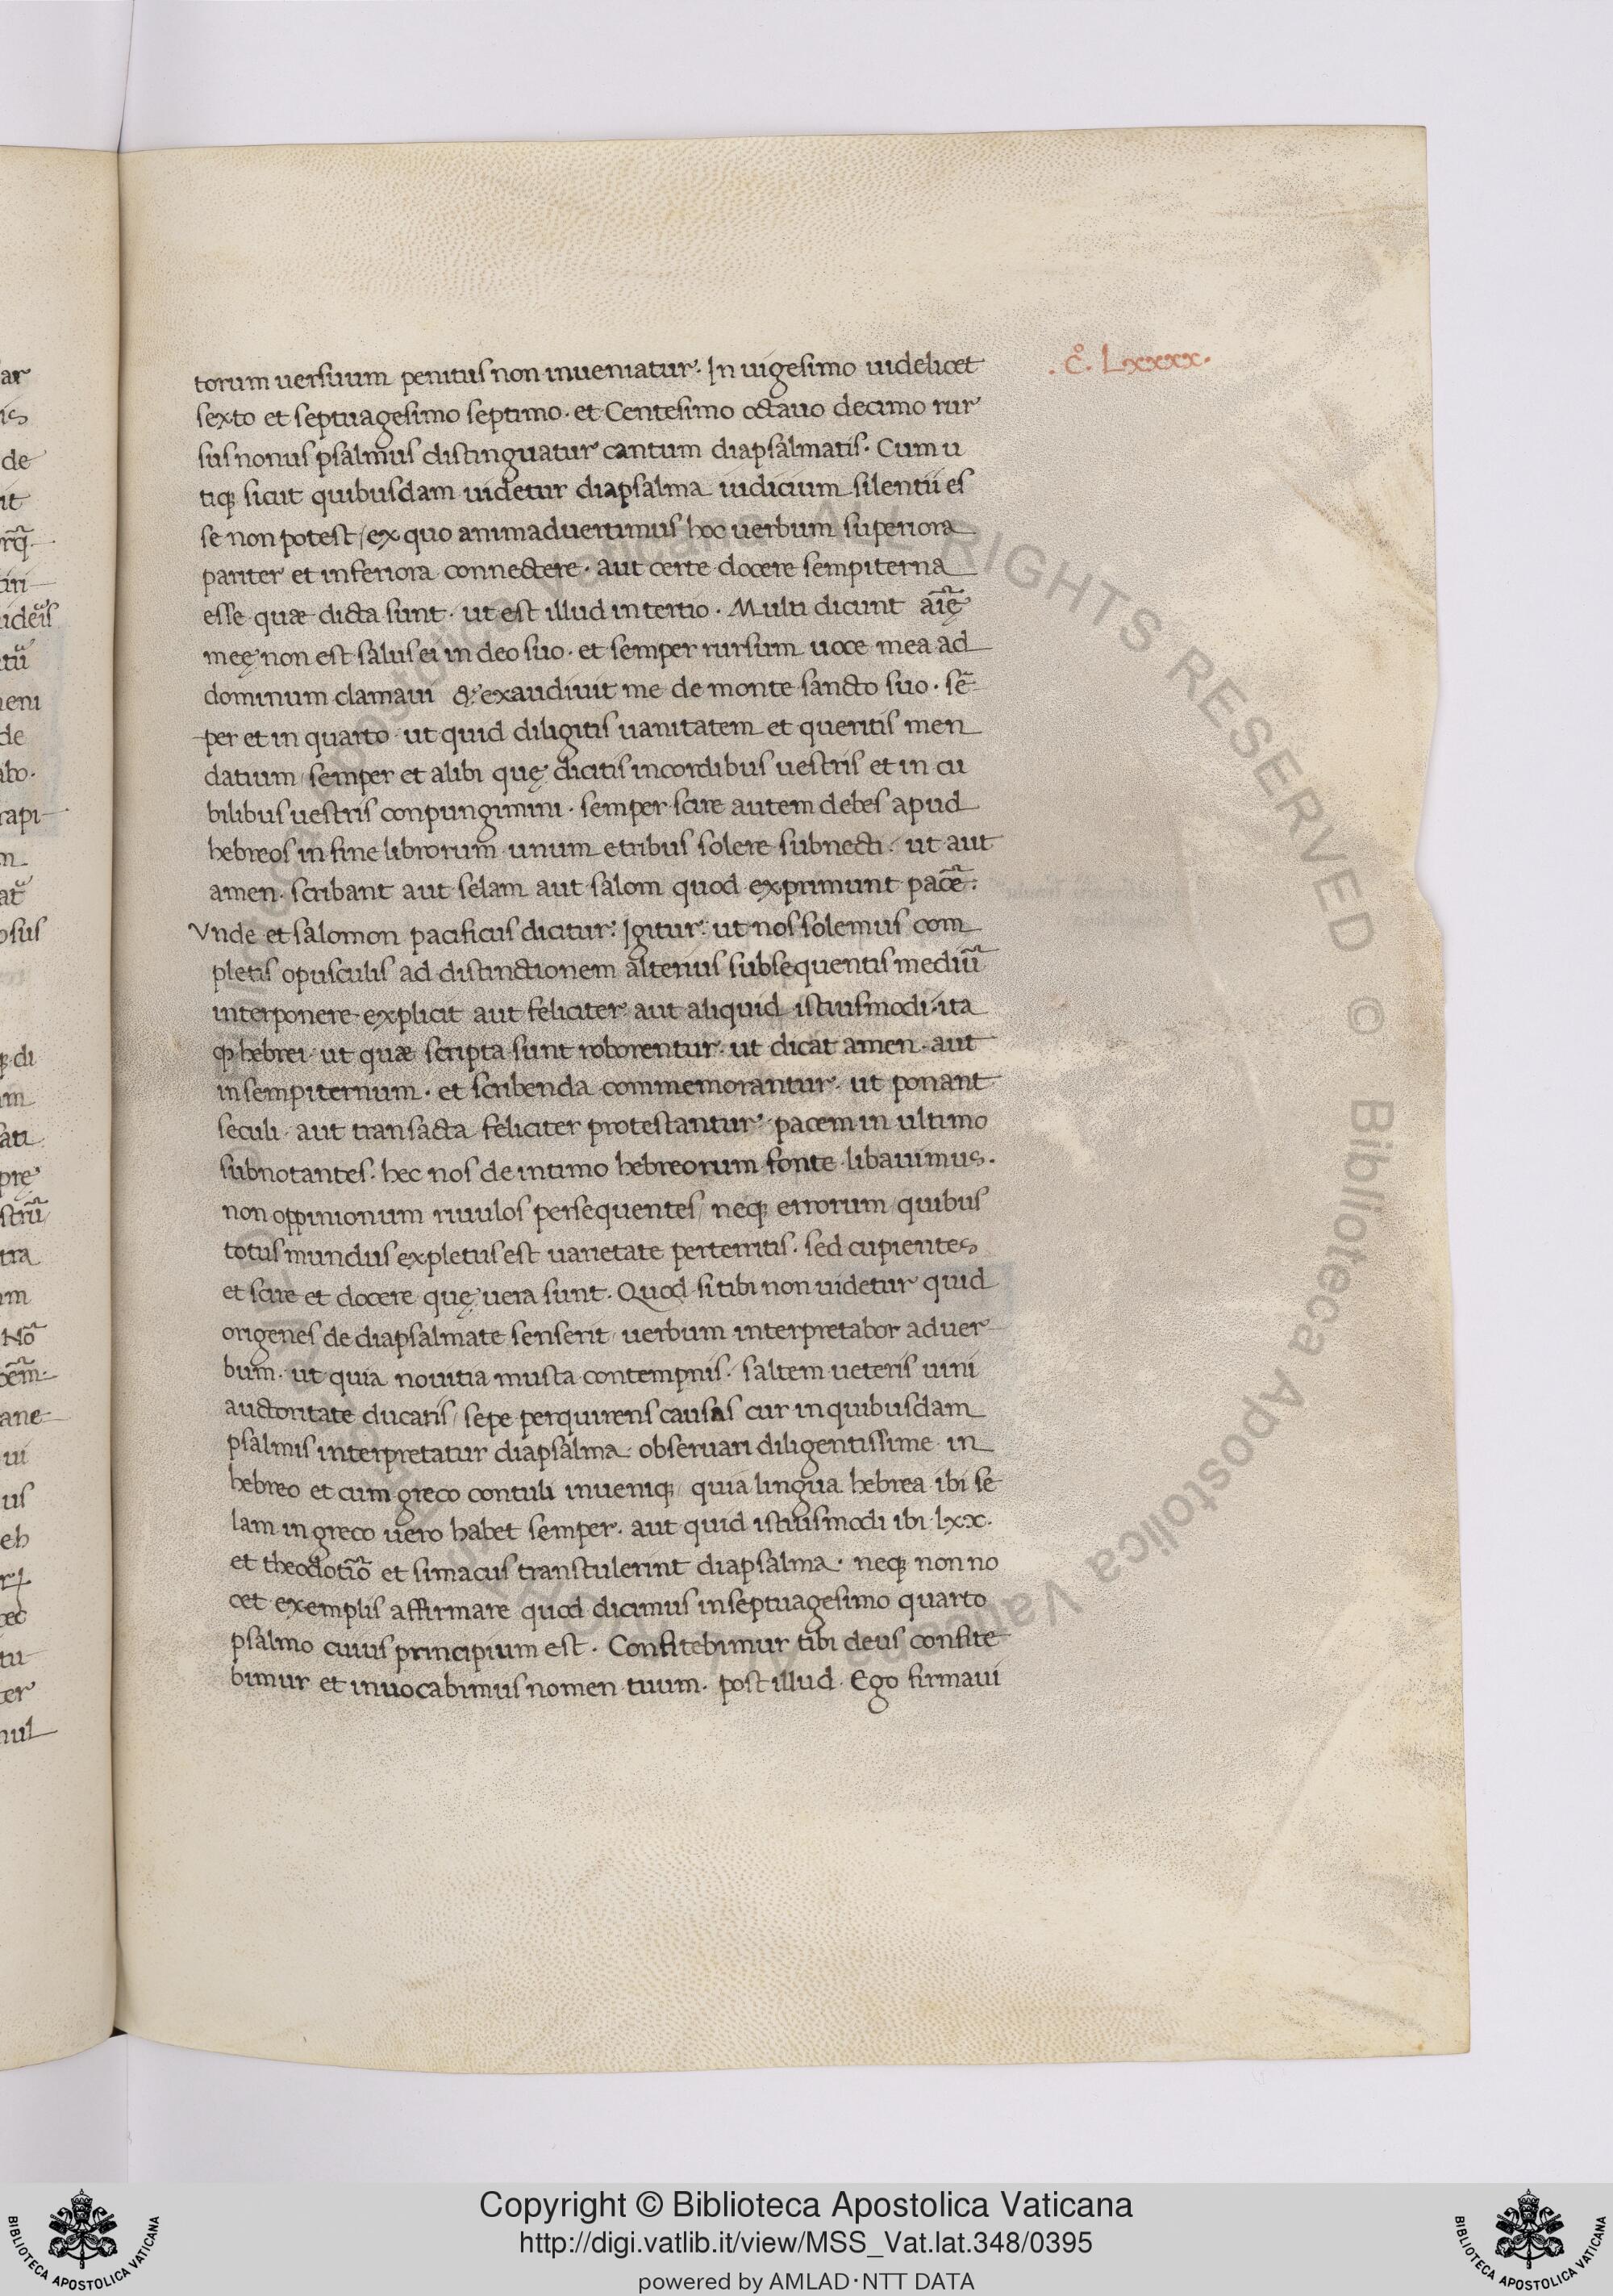 torum uersuum penitus non inueniatur. In uigesimo uidelicet
.c̊. Lxxxx.
sexto et septuagesimo septimo. et Centesimo octauo decimo rur
sus nonus psalmus distinguatur cantum diapsalmatis. Cum u
tiq; sicut quibusdam uidetur diapsalma iudicium silentii es
se non potest / ex quo animaduertimus hoc uerbum superiora
pariter et inferiora connectere. aut certe docere sempiterna
esse quæ dicta sunt. ut est illud in tertio. Multi dicunt aı̅ę
meę non est salus ei in deo suo. et semper rursum uoce mea ad
dominum clamaui & exaudiuit me de monte sancto suo. se̅
per et in quarto ut quid diligitis uanitatem et queritis men
datium / semper et alibi quę dicitis in cordibus uestris et in cu
bilibus uestris conpungimini. semper scire autem debes apud
hebreos in fine librorum unum e tribus solere subnecti. ut aut
amen. scribant aut selam aut salom quod exprimunt pace̅.
Vnde et salomon pacificus dicitur. Igitur. ut nos solemus com
pletis opusculis ad distinctionem alterius subsequentis mediu̅
interponere explicit aut feliciter aut aliquid istiusmodi. ita
qꝫ hebrei ut quæ scripta sunt roborentur. ut dicat amen. aut
in sempiternum. et scribenda commemorantur. ut ponant
seculi. aut transacta feliciter protestantur. pacem in ultimo
subnotantes. hec nos de intimo hebreorum fonte libauimus.
non oppinionum riuulos persequentes / neq; errorum / quibus
totus mundus expletus est uarietate perterritis. sed cupientes
et scire et docere quę uera sunt. Quod si tibi non uidetur quid
origenes de diapsalmate senserit / uerbum interpretabor aduer
bum. ut quia nouitia musta contempnis. saltem ueteris uini
auctoritate ducaris / sepe perquirens causas cur in quibusdam
psalmis interpretatur diapsalma. obseruari diligentissime in
hebreo et cum greco contuli inueniq; / quia lingua hebrea ibi se
lam in greco uero habet semper. aut quid istiusmodi ibi lxx.
et theodotio̅ et simacus transtulerint diapsalma. neq; non no
cet exemplis affirmare quod dicimus in septuagesimo quarto
psalmo cuius principium est. Confitebimur tibi deus confite
bimur et inuocabimus nomen tuum. post illud. Ego firmaui
Copyright © Biblioteca Apostolica Vaticana
http://digi.vatlib.it/view/MSS_Vat.lat.348/0395
powered by AMLAD·NTT DATA
BIBLIOTECA APOSTOLICA VATICANA
BIBLIOTECA APOSTOLICA VATICANA